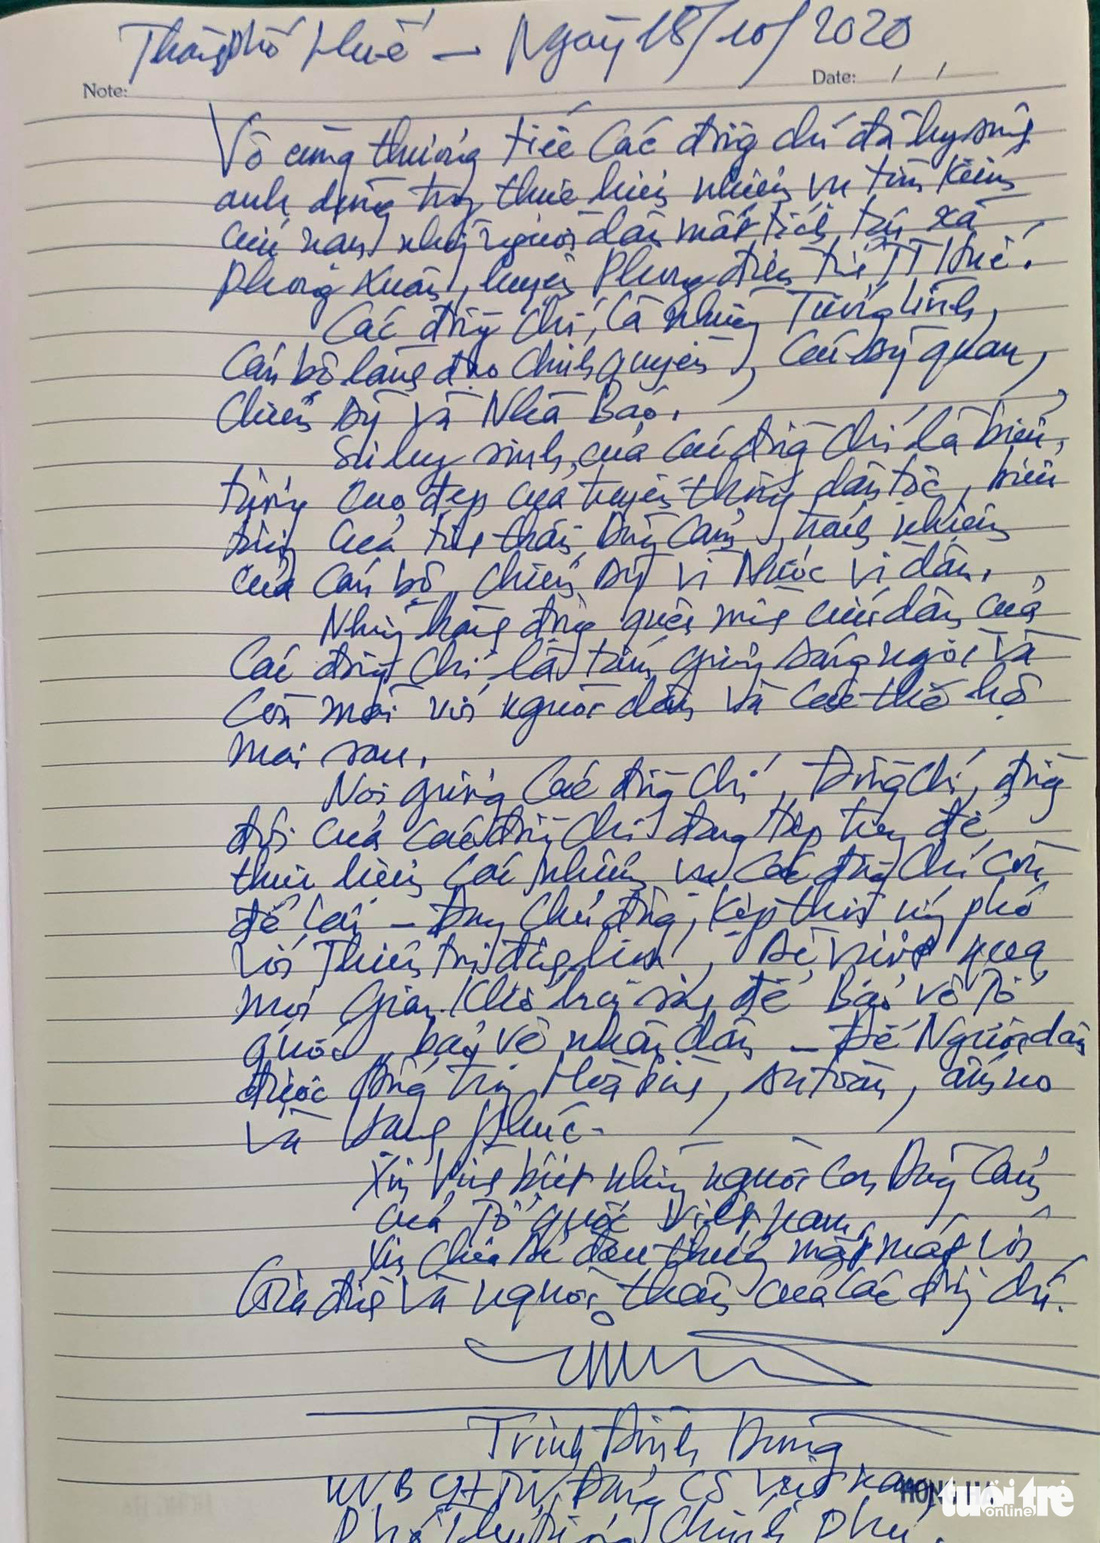 Thành phố Huế – Ngày 18/10/2020
Note: Date: / /
Vô cùng thương tiếc các đồng chí đã hy sinh
anh dũng trong thực hiện nhiệm vụ tìm kiếm
cứu nạn những người dân mất tích tại xã
Phong Xuân, huyện Phong điền tỉnh TT Huế.
Các đồng chí, là những Tướng lĩnh,
Cán bộ lãnh đạo chính quyền, các sỹ quan,
Chiến sỹ và Nhà Báo.
Sự hy sinh của các đồng chí là biểu
tượng cao đẹp của truyền thống dân tộc, biểu
tượng của tinh thần dũng cảm, trách nhiệm
của cán bộ, chiến sỹ vì Nước vì dân.
Những hành động quên mình cứu dân của
Các đồng chí là tấm gương sáng ngời và
Còn mãi với người dân và các thế hệ
mai sau.
Noi gương các đồng chí, Đồng chí, đồng
đội của các đồng chí đang tiếp tục để
thực hiện các nhiệm vụ các đồng chí còn
để lại – chủ động, kịp thời ứng phó
với Thiên tai, sẽ vượt qua
mọi gian khổ hy sinh để Bảo vệ Tổ
quốc, bảo vệ nhân dân – Để Người dân
được sống trong Hoà bình, an toàn, ấm no
và hạnh phúc.
Xin vĩnh biệt những người con Dũng cảm
của Tổ quốc Việt nam.
Xin chia sẻ đau thương mất mát với
Gia đình và người thân của các đồng chí.
Trịnh Đình Dũng
UVBCHTW Đảng CS Việt Nam
Phó Thủ tướng Chính Phủ.
HONG HA
tuổi trẻ
online